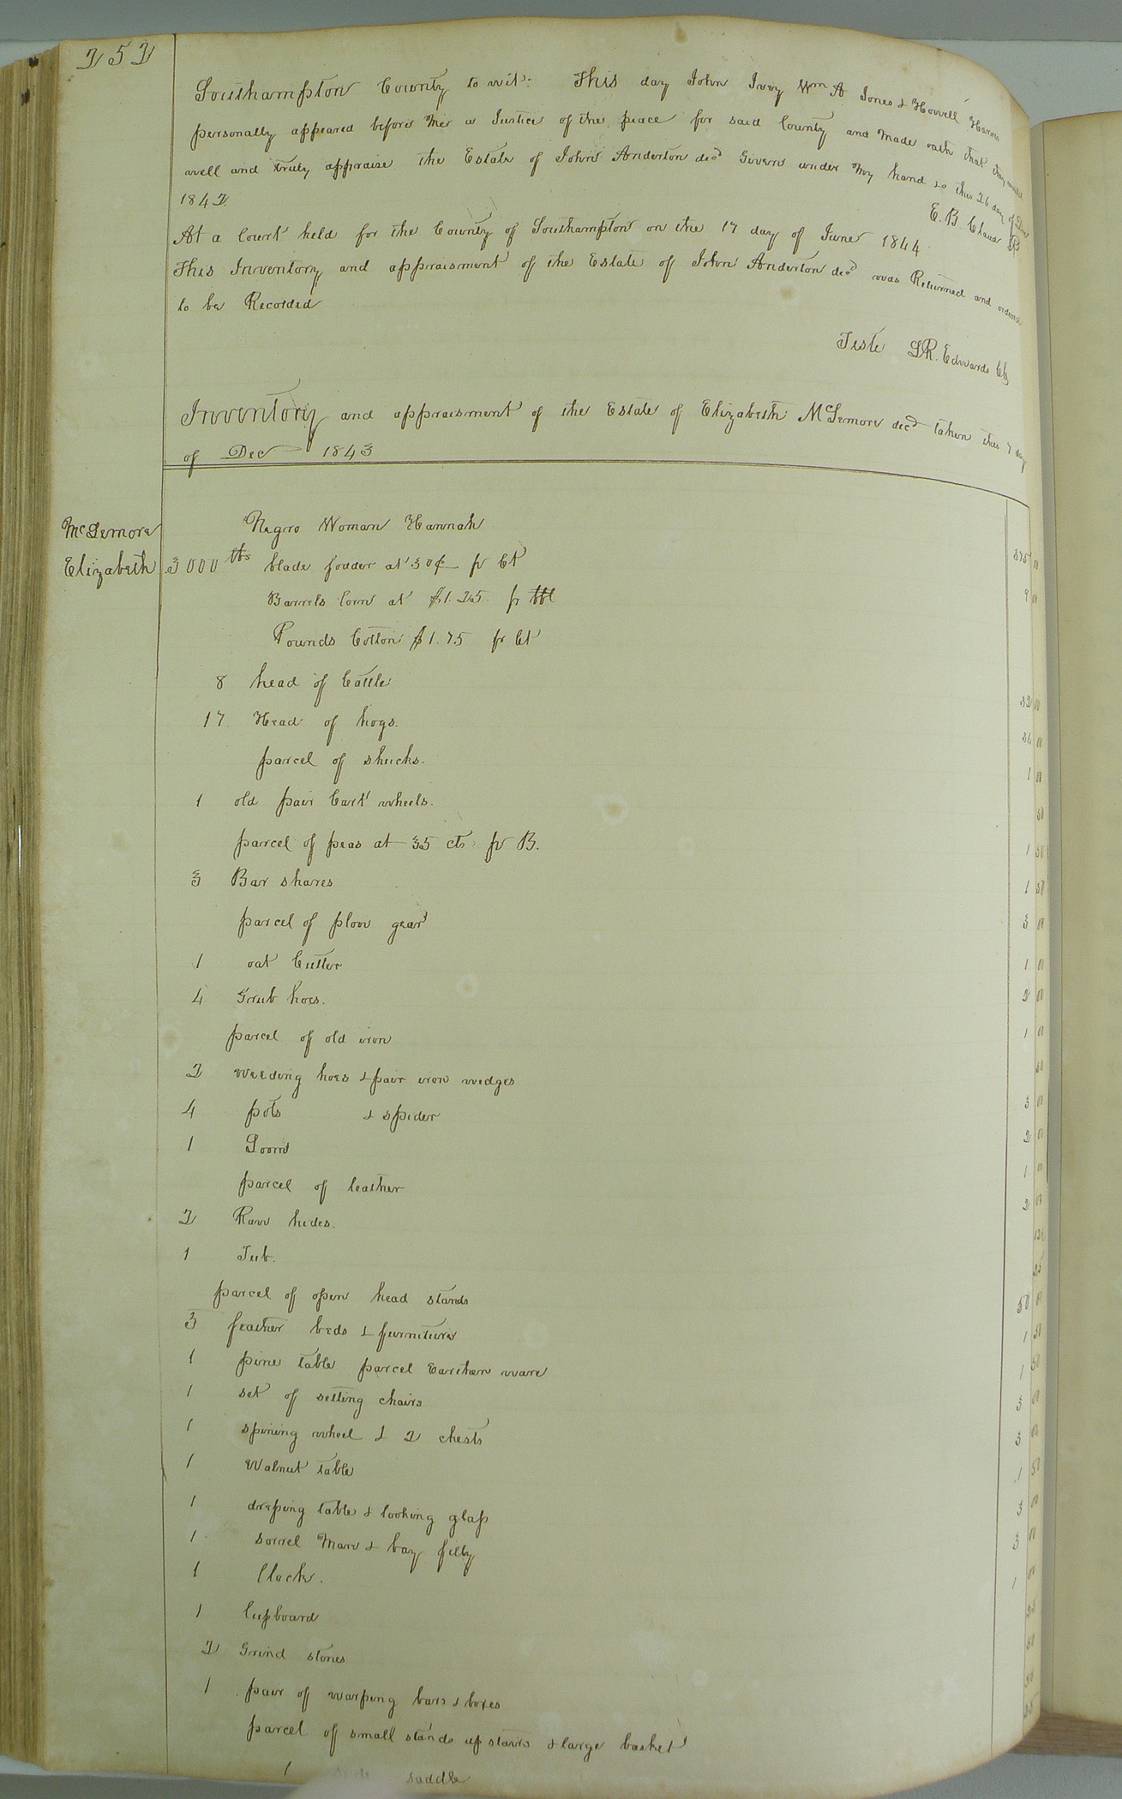 252
Southampton County to wit: This day John Ivey Wm A Jones & Howell Harris
personally appeared before Me a Justice of the peace for said County and Made oath that they would
well and truly appraise the Estate of John Anderton decd Given under My hand this 26 day of
1842
E. B. Claud
At a Court held for the County of Southampton on the 17 day of June 1844
This Inventory and appraisment of the Estate of John Anderton decd was Returned and ordered
to be Recorded
Teste LR. Edwards Clk
Inventory and appraisment of the Estate of Elizabeth McLemore decd taken this 7 day
of Dec 1843
McLemore
Elizabeth
Negro Woman Hannah
3000 lbs blade fodder at 30¢ pr Ct 9
Barrels Corn at $1.25 pr bbl
Pounds Cotton $1.75 pr Ct
8 head of Cattle 32 00
17 Head of hogs.
parcel of shucks. 1 00
1 old pair Cart wheels. 50
parcel of peas at 35 cts pr B. 1 50
3 Bar shares 1 50
parcel of plow gear 3 00
1 oat Cutter 1 00
4 Grub hoes. 2 00
parcel of old iron 1 00
2 weeding hoes & pair iron wedges 50
4 pots & spider 3 00
1 Loom 2 00
parcel of leather 1 00
2 Raw hides. 2 00
1 Tub.
parcel of open head stands 25
3 feather beds & furniture 50 00
1 pine table parcel Earthen ware 1 50
1 set of setting chairs 1 50
1 spining wheel & 2 chests 3 00
1 Walnut table 3 00
1 dressing table & looking glass 1 50
1 sorrel Mare & bay filly
1 Clock. 3 00
1 Cupboard 1 00
2 Grind stones
1 pair of warping bars & boxes 50
parcel of small stands up stairs & large basket
1 saddle